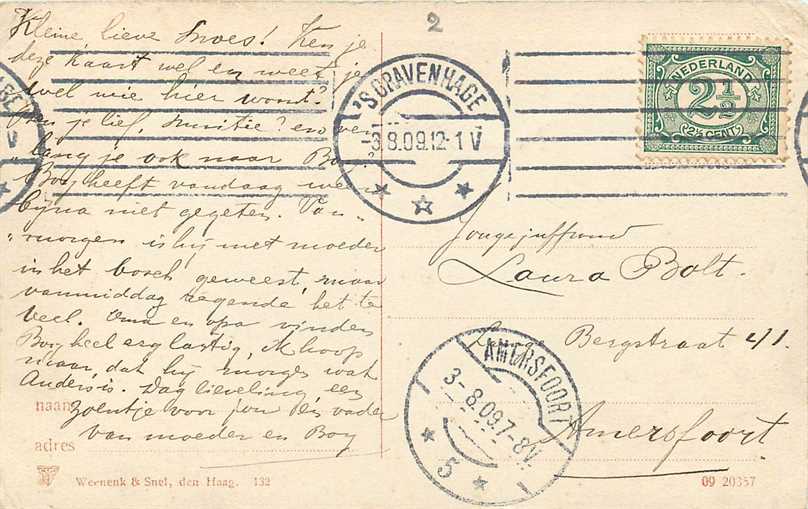 2
Kleine lieve Snoes! Ken je
deze kaart wel en weet je
wel wie hier woont?
je lief, snuitie? en ver-
lang je ook naar Boy
Boy heeft vandaag weer
bijna niet gegeten. Van-
"morgen is hij met moeder
in het bosch geweest, maar
vanmiddag regende het te
veel. Oma en opa vinden
Boy heel erg lastig, ik hoop
maar, dat hij morgen wat
Anders is. Dag lieveling een
zoentje voor jou en vader
van moeder en Boy
naam
adres
Weenenk & Snel, den Haag. 132
'S GRAVENHAGE
-3.8.09.12-1 V
NEDERLAND
2½
2½ CENT
Jongejuffrouw
Laura Bolt.
Bergstraat 41.
Amersfoort.
AMERSFOORT
3-8.09.7-8V.
5
09 20357